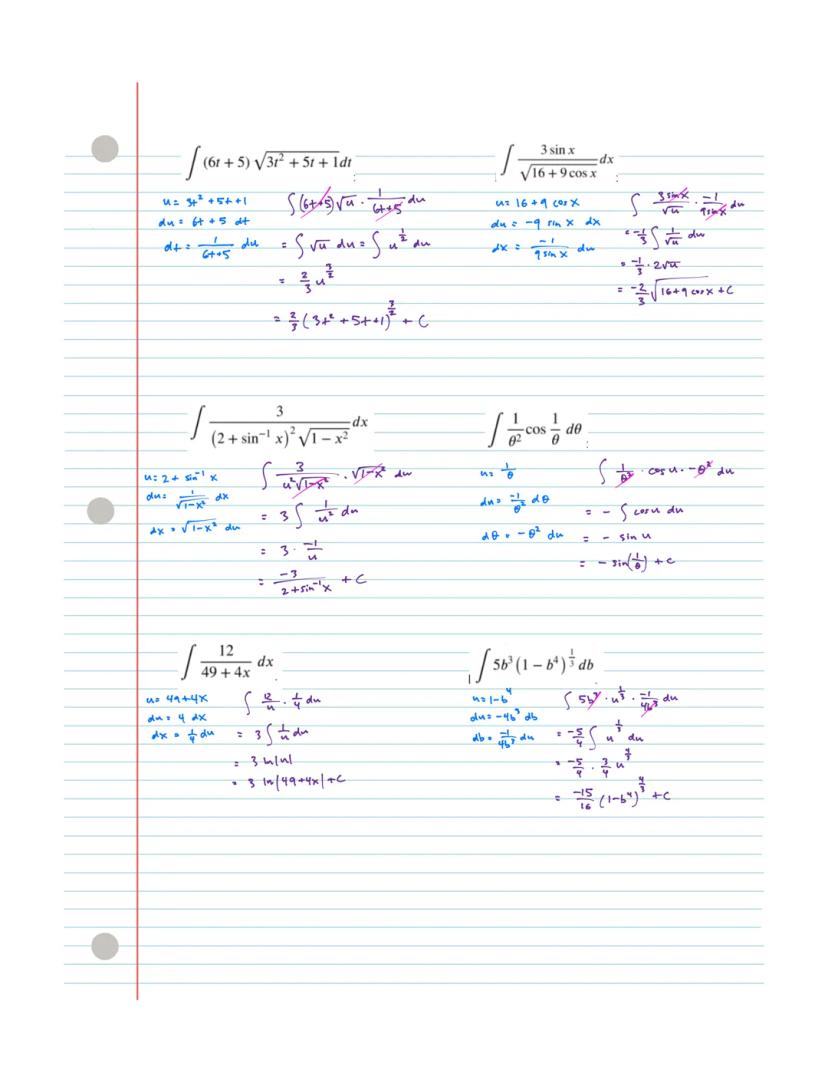 ∫ (6t + 5) √(3t² + 5t + 1) dt
u = 3t² + 5t + 1
du = 6t + 5 dt
dt = 1/(6t+5) du
∫ (6t+5) √u · 1/(6t+5) du
= ∫ √u du = ∫ u^(1/2) du
= 2/3 u^(3/2)
= 2/3 (3t² + 5t + 1)^(3/2) + C
∫ 3 sin x / √(16 + 9 cos x) dx
u = 16 + 9 cos x
du = -9 sin x dx
dx = -1/(9 sin x) du
∫ 3 sin x/√u · -1/(9 sin x) du
= -1/3 ∫ 1/√u du
= -1/3 · 2√u
= -2/3 √(16 + 9 cos x) + C
∫ 3 / ((2 + sin⁻¹ x)² √(1 − x²)) dx
u = 2 + sin⁻¹ x
du = 1/√(1-x²) dx
dx = √(1-x²) du
∫ 3/(u² √(1-x²)) · √(1-x²) du
= 3 ∫ 1/u² du
= 3 · -1/u
= -3/(2 + sin⁻¹ x) + C
∫ 1/θ² cos 1/θ dθ
u = 1/θ
du = -1/θ² dθ
dθ = -θ² du
∫ 1/θ² · cos u · -θ² du
= - ∫ cos u du
= - sin u
= - sin(1/θ) + C
∫ 12/(49 + 4x) dx
u = 49 + 4x
du = 4 dx
dx = 1/4 du
∫ 12/u · 1/4 du
= 3 ∫ 1/u du
= 3 ln|u|
= 3 ln|49+4x| + C
∫ 5b³ (1 − b⁴)^(1/3) db
u = 1-b⁴
du = -4b³ db
db = -1/(4b³) du
∫ 5b³ · u^(1/3) · -1/(4b³) du
= -5/4 ∫ u^(1/3) du
= -5/4 · 3/4 u^(4/3)
= -15/16 (1-b⁴)^(4/3) + C